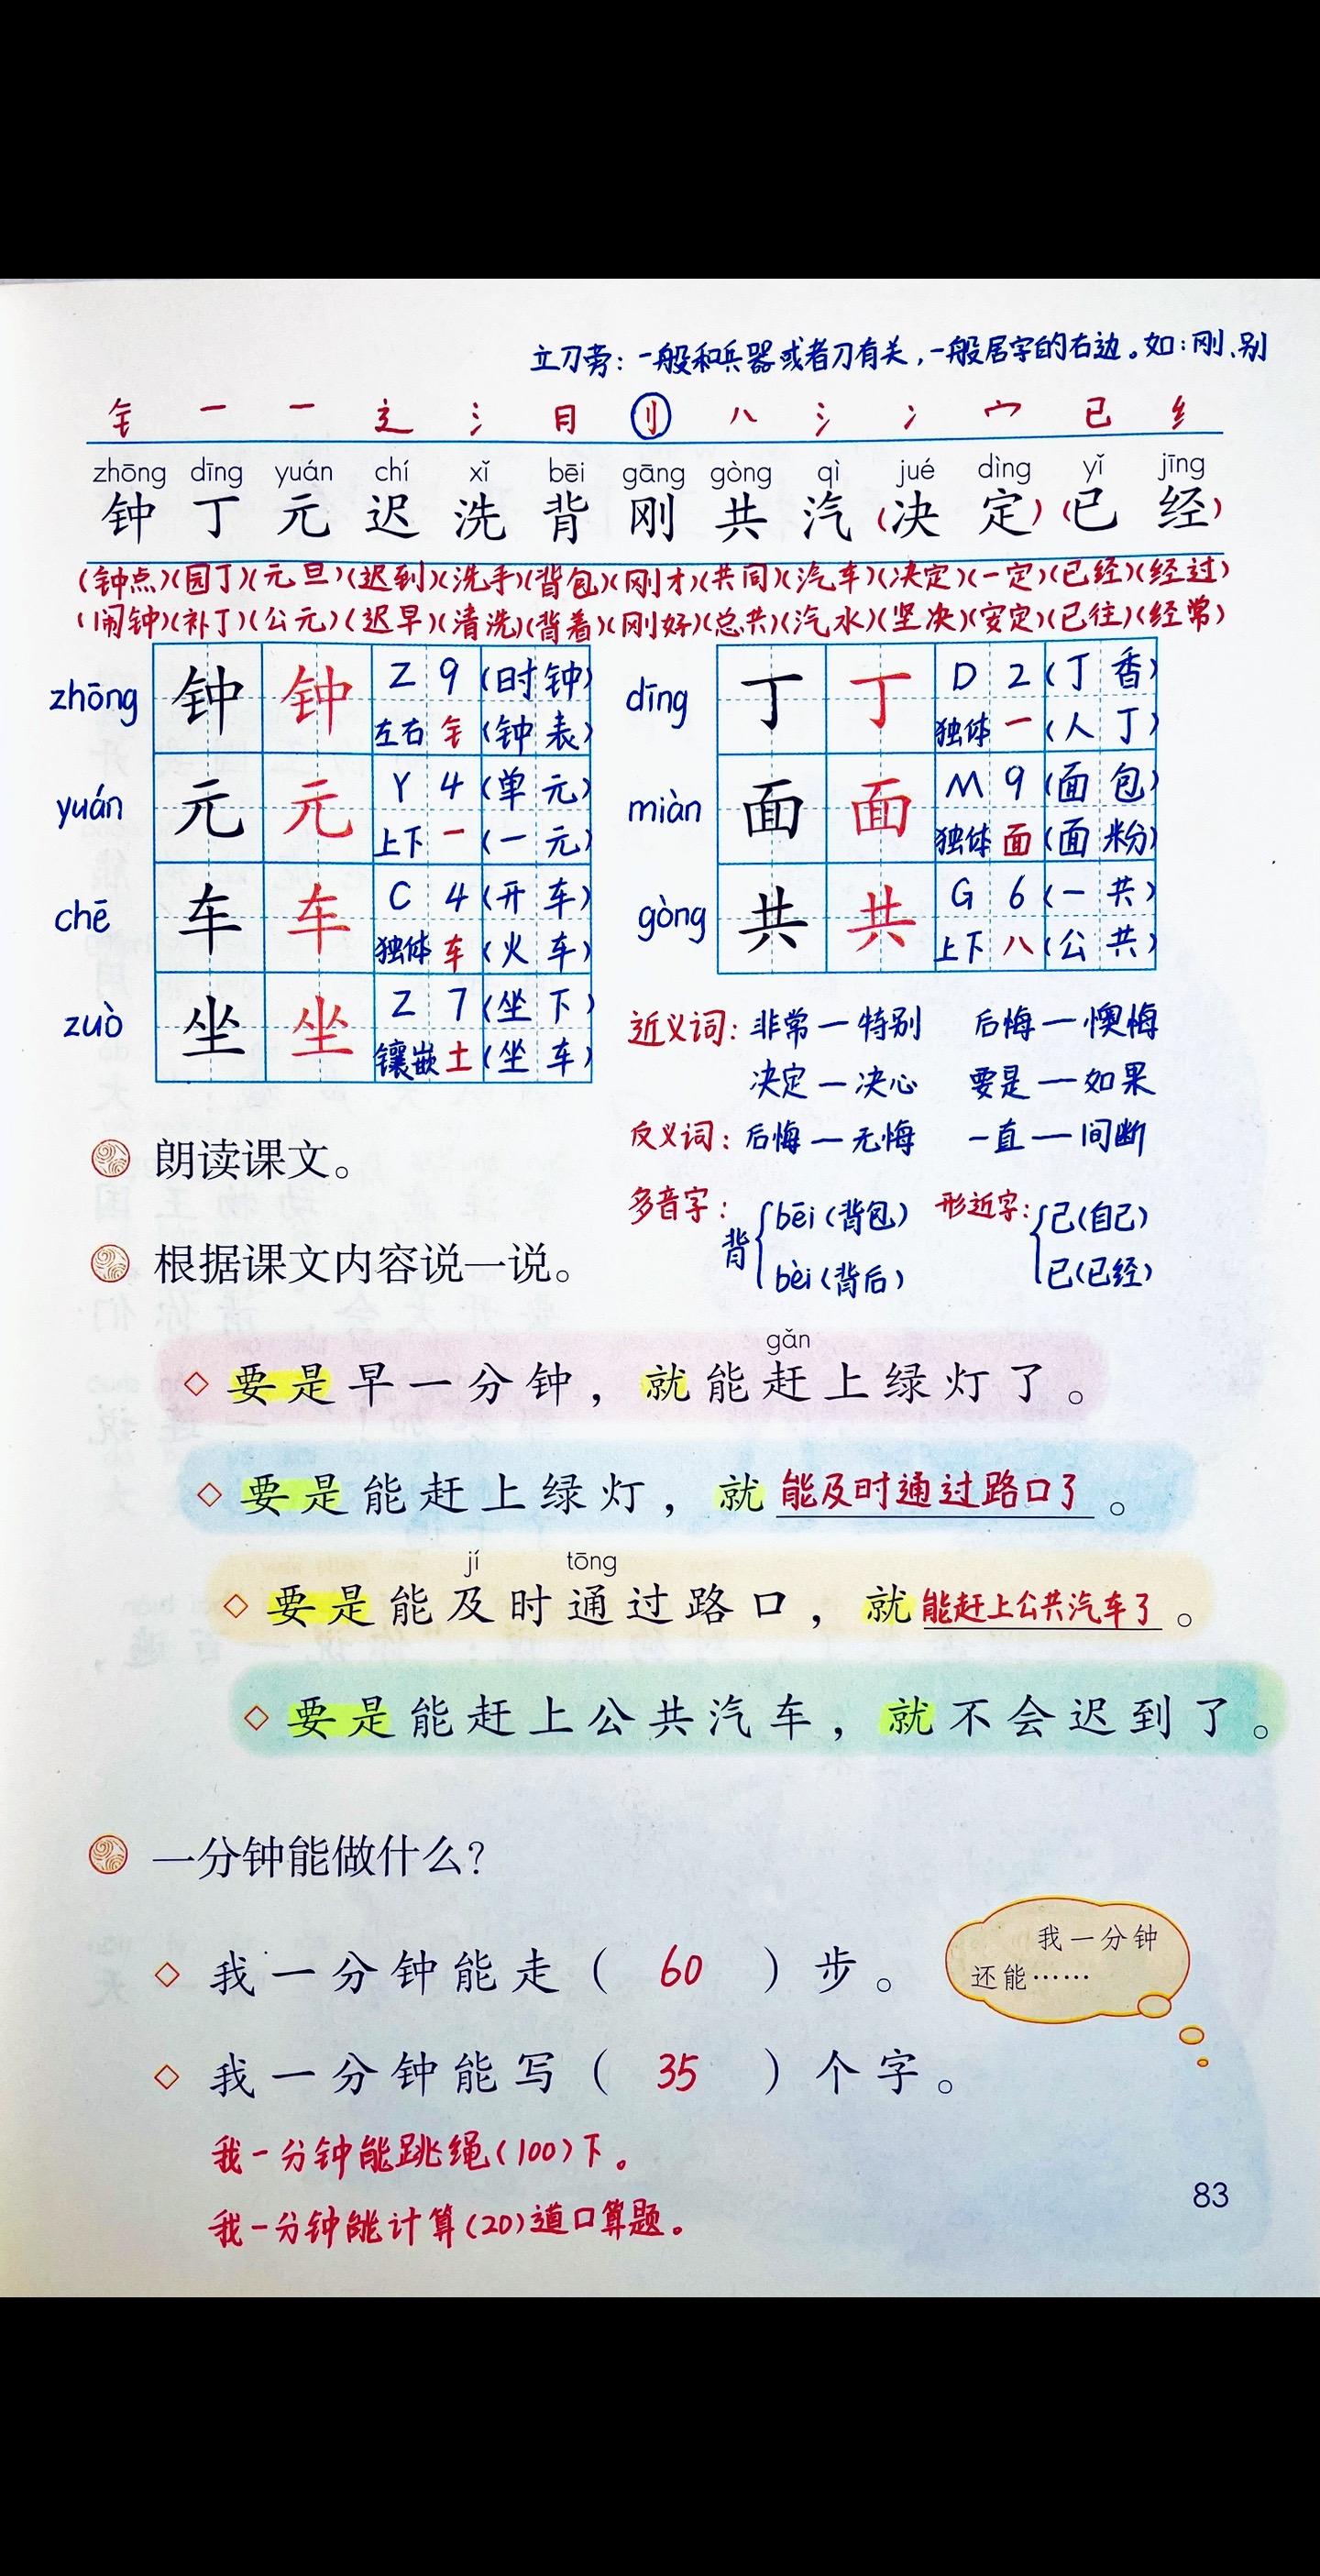 立刀旁：一般和兵器或者刀有关，一般居字的右边。如：刚、别
钅 一 一 辶 氵 月 刂 八 氵 冫 宀 已 纟
zhōng dīng yuán chí xǐ bēi gāng gòng qì jué dìng yǐ jīng
钟 丁 元 迟 洗 背 刚 共 汽（决 定）（已 经）
（钟点）（园丁）（元旦）（迟到）（洗手）（背包）（刚才）（共同）（汽车）（决定）（一定）（已经）（经过）
（闹钟）（补丁）（公元）（迟早）（清洗）（背着）（刚好）（总共）（汽水）（坚决）（安定）（已往）（经常）
zhōng 钟 钟 Z 9（时钟）
左右 钅（钟表）
yuán 元 元 Y 4（单元）
上下 一（一元）
chē 车 车 C 4（开车）
独体 车（火车）
zuò 坐 坐 Z 7（坐下）
镶嵌 土（坐车）
dīng 丁 丁 D 2（丁香）
独体 一（人丁）
miàn 面 面 M 9（面包）
独体 面（面粉）
gòng 共 共 G 6（一共）
上下 八（公共）
近义词：非常—特别 后悔—懊悔
决定—决心 要是—如果
反义词：后悔—无悔 一直—间断
多音字：背 bēi（背包） bèi（背后）
形近字：己（自己） 已（已经）
朗读课文。
根据课文内容说一说。
gǎn
◇ 要是早一分钟，就能赶上绿灯了。
◇ 要是能赶上绿灯，就能及时通过路口了。
jí tōng
◇ 要是能及时通过路口，就能赶上公共汽车了。
◇ 要是能赶上公共汽车，就不会迟到了。
一分钟能做什么？
◇ 我一分钟能走（ 60 ）步。
我一分钟
还能……
◇ 我一分钟能写（ 35 ）个字。
我一分钟能跳绳（100）下。
我一分钟能计算（20）道口算题。
83